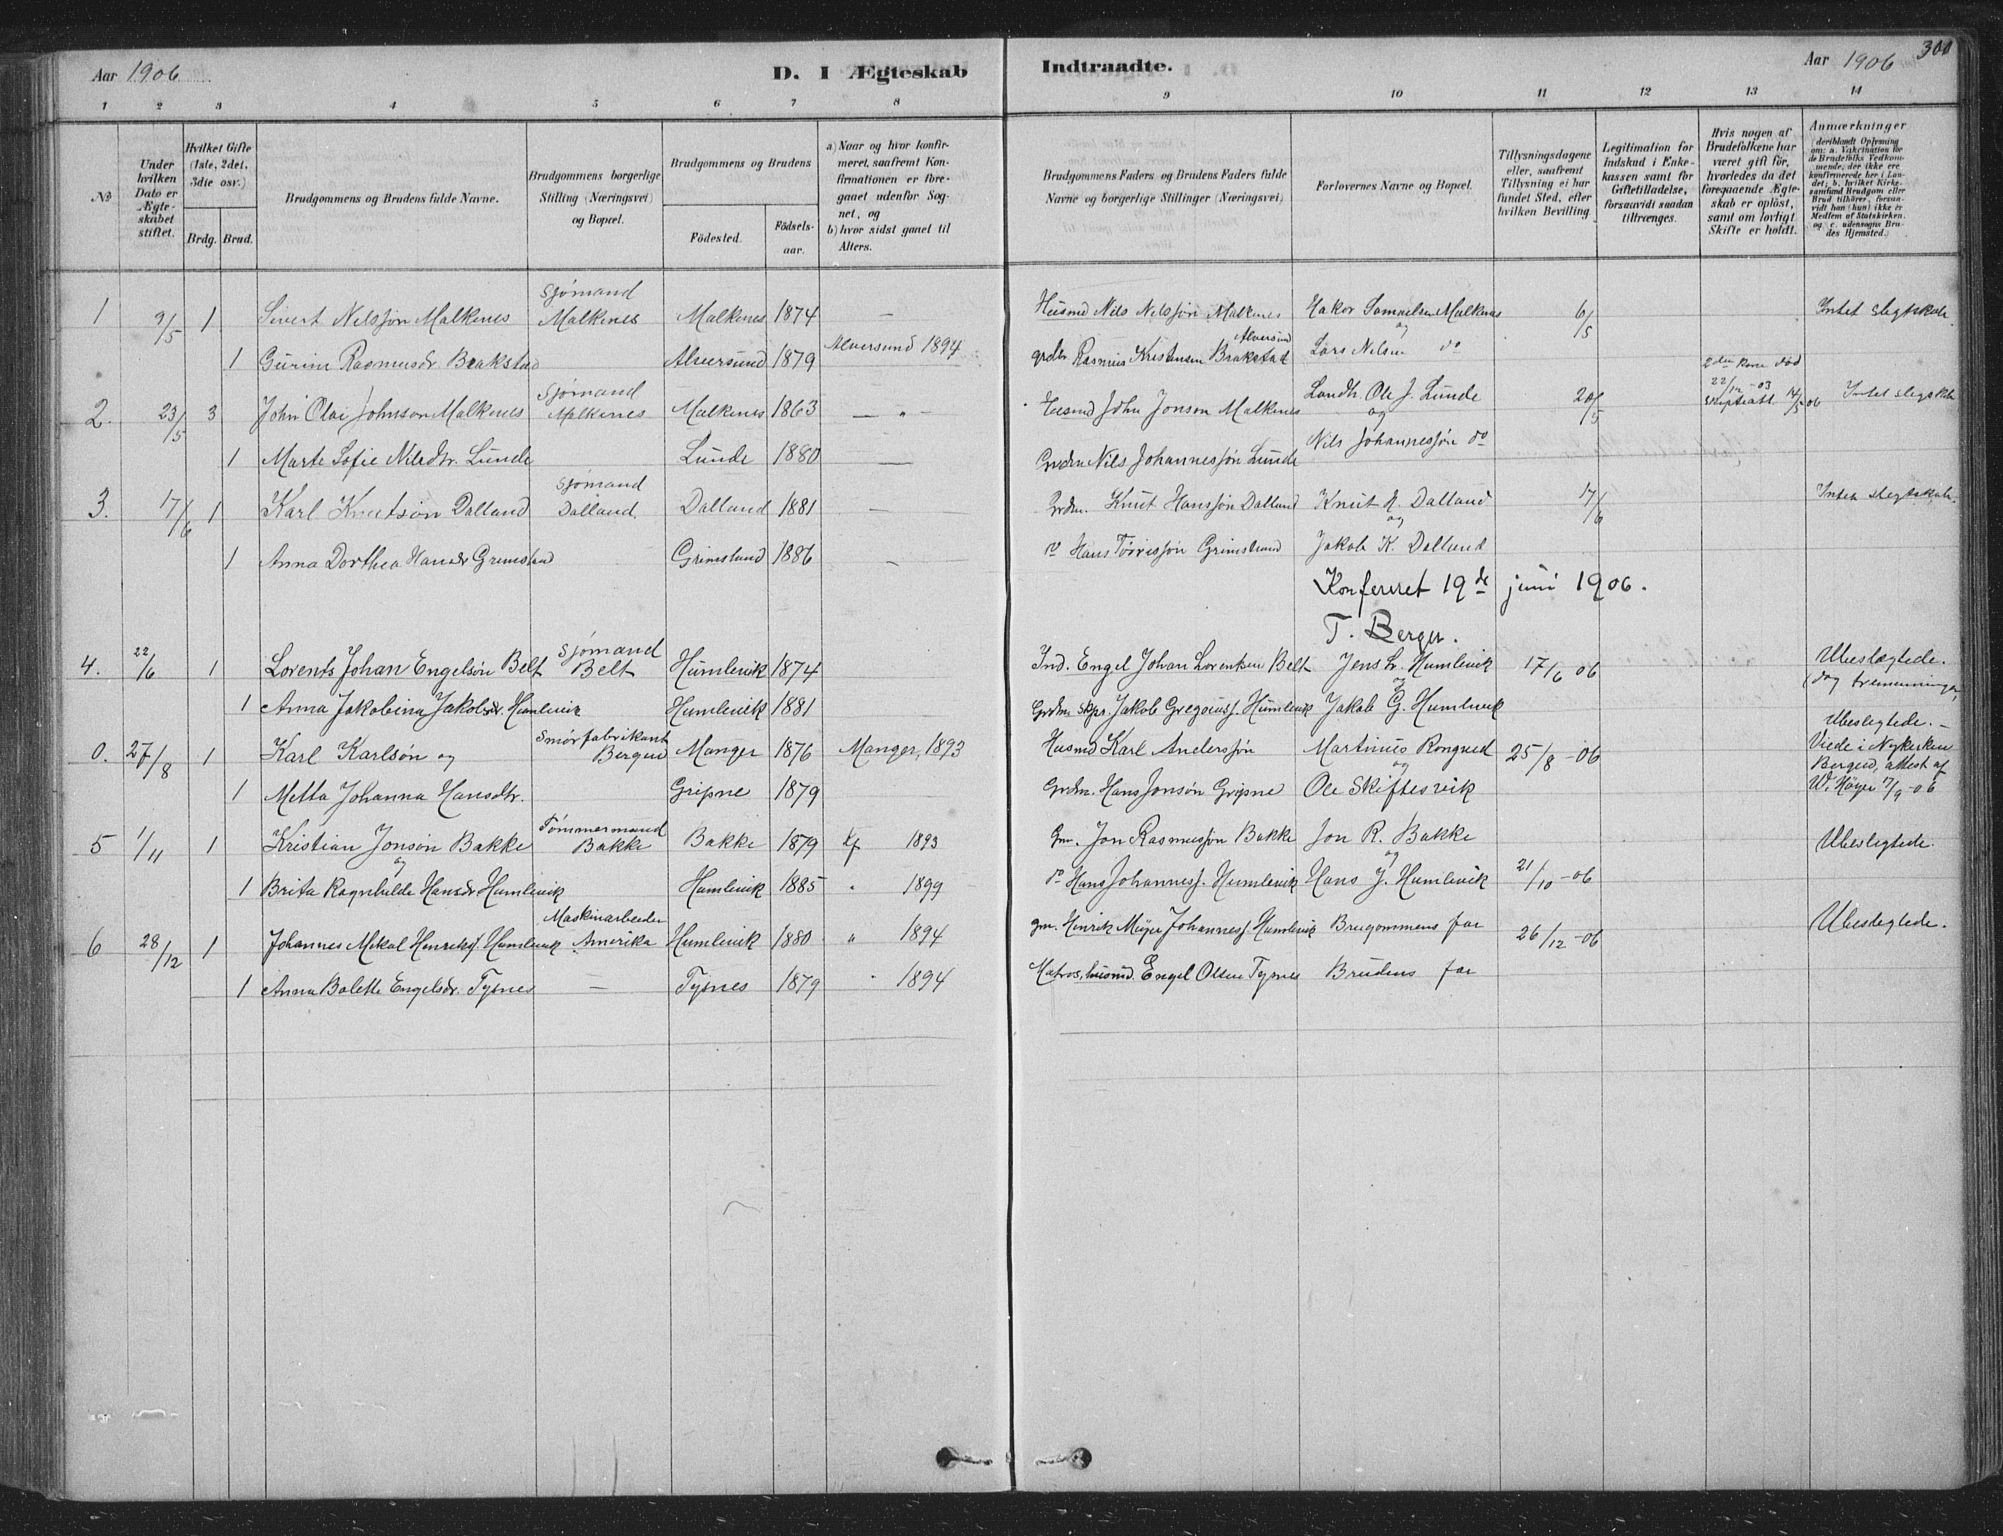 Aar 1906
D. I Ægteskab
Indtraadte.
Aar 1906
300
1 2 3 4 5 6 7 8 9 10 11 12 13 14
No
Under hvilken Dato er Ægteskabet stiftet.
Hvilket Gifte (1ste, 2det, 3die osv.)
Brdg. Brud.
Brudgommens og Brudens fulde Navne.
Brudgommens borgerlige Stilling (Næringsvei) og Bopæl.
Brudgommens og Brudens
Fødested.
Fødselsaar.
a) Naar og hvor konfirmeret, saafremt Konfirmationen er foregaaet udenfor Sognet, og
b) hvor sidst gaaet til Alters.
Brudgommens Faders og Brudens Faders fulde Navne og borgerlige Stillinger (Næringsvei)
Forlovernes Navne og Bopæl.
Tillysningsdagene eller, saafremt Tillysning ei har fundet Sted, efter hvilken Bevilling.
Legitimation for Indskud i Enkekassen samt for Giftetilladelse, forsaavidt saadan tiltrænges.
Hvis nogen af Brudefolkene har været gift før, hvorledes da det foregaaende Ægteskab er opløst, samt om lovligt Skifte er holdt.
Anmærkninger
(deriblandt Oplysning om: a. Vakcination for de Brudefolks Vedkommende, der ikke ere konfirmerede her i Landet; b. hvilket Kirkesamfund Brudgom eller Brud tilhører, forsaavidt han (hun) ikke er Medlem af Statskirken, og c. udensogns Brudes Hjemsted.)
1 9/5 1 Sivert Nilssøn Malkenes Sjømand Malkenes Malkenes 1874 — Husmd Nils Nilssøn Malkenes Hakor Samuelsen Malkenes og 6/5 Intet slegtskab.
1 Gurine Rasmusdr Brakstad Alversund 1879 Alversund 1894 grdbr Rasmus Kristensen Brakstad Alversund Lars Nilsen do
2. 23/5 3 John Olai Johnson Malkenes Sjømand Malkenes Malkenes 1863 — " — Husmd John Jonson Malkenes Landh. Ole J. Lunde og 20/5 2den Kone død 22/12 -03 14/5 06 Intet slegskab
1 Marte Sofie Nilsdtr. Lunde Lunde 1880 — Grdm Nils Johannessøn Lunde Nils Johannessøn do
3. 17/6 1 Karl Knutsøn Dalland Sjømand Dalland Dalland 1881 — Grdm. Knut Hanssøn Dalland Knut H. Dalland og 17/6 Intet slegtskab.
1 Anna Dorthea Hansdr Grimstad Grimstand 1886 — do Hans Grimstrand Jakob K. Dalland
Konfereret 19de juni 1906.
T. Berger.
4. 22/6 1 Lorents Johan Engelsøn Belt Sjømand Belt Humlevik 1874 Ind. Engel Johan Lorentsen Belt Jens Humlevik og 17/6 06 Ubeslægtede. (dog tremenninger)
1 Anna Jakobina Jakobsdr. Humlevik Humlevik 1881 Grdm. skpr. Jakob Gregoriusf. Humlevik Jakob G. Humlevik
0. 27/8 1 Karl Karlsøn og Smørfabrikant Bergen Manger 1876 Manger, 1893 Husmd Karl Anderssøn Martinus Rongved og 25/8 -06 Ubeslegtede. – Viede i Nykirken Bergen, attest af W. Høyer 17/9 -06
1 Metta Johanna Hansdtr. Gripne 1879 Grdm. Hans Jonsøn Gripne Ole Skiftesvik
5 1/11 1 Kristian Jonsøn Bakke og Tømmermand Bakke Bakke 1879 Kf 1893 Gm. Jon Rasmussøn Bakke Jon R. Bakke og Ubeslegtede.
1 Brita Ragnhilde Hansdr Humlevik Humlevik 1885 " 1899 do Hans Johannesf. Humlevik Hans J. Humlevik 21/10 -06
6 28/12 1 Johannes Mikal Henriksf. Humlevik Maskinarbeider Amerika Humlevik 1880 " 1894 gm. Henrik Meyer Johannesf. Humlevik Brugommens far 26/12 -06 Ubeslegtede.
1 Anna Bolette Engelsdr. Tysnes — Tysnes 1879 " 1894 Matros, husmd. Engel Olsen Tysnes Brudens far